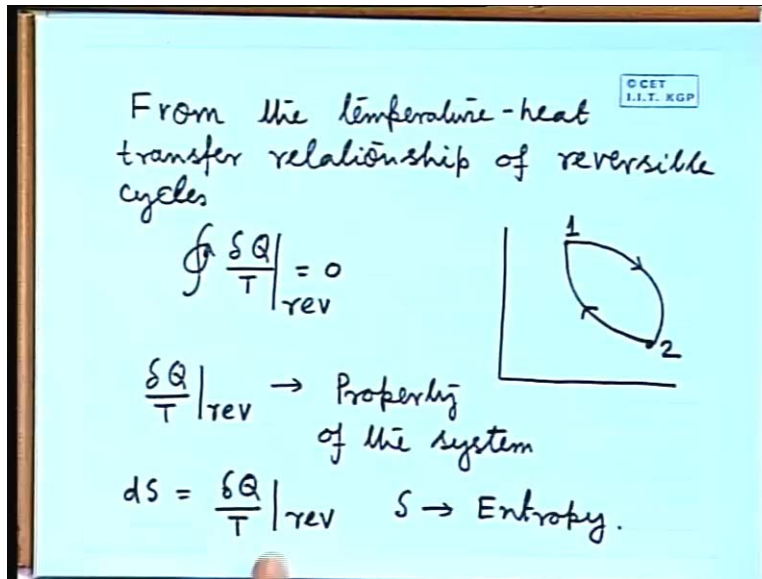 © CET
I.I.T. KGP
From the temperature-heat
transfer relationship of reversible
cycles
∮ δQ/T |rev = 0
1
2
δQ/T |rev → Property
of the system
dS = δQ/T |rev S → Entropy.